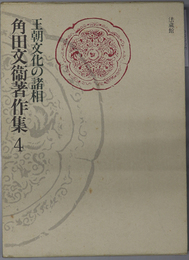 法蔵館
王朝文化の諸相
角田文衞著作集 4